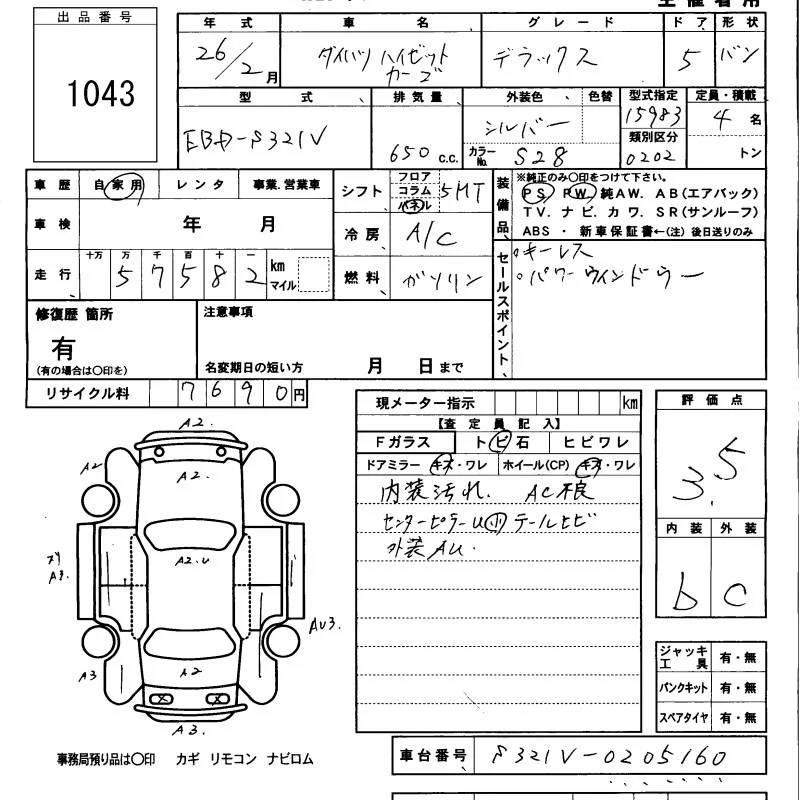 出品番号
1043
年式 車名 グレード ドア 形状
26/2月 ダイハツ ハイゼット カーゴ デラックス 5 バン
型式 排気量 外装色 色替 型式指定 定員・積載
EBD-S321V 650 c.c. シルバー 15983 4名
カラーNo. S28 類別区分 0202 トン
車歴 自家用 レンタ 事業.営業車
車検 年 月
走行 十万 万 千 百 十 一
57582 km マイル
シフト フロア コラム パネル 5MT
冷房 A/C
燃料 ガソリン
装備品
※純正のみ〇印をつけて下さい。
PS PW 純AW. AB(エアバック)
TV. ナビ. カワ. SR(サンルーフ)
ABS ・ 新車保証書←(注) 後日送りのみ
セールスポイント
・キーレス
・パワーウィンドウー
修復歴 箇所
有
(有の場合は〇印を)
注意事項
名変期日の短い方 月 日まで
リサイクル料 7690円
現メーター指示 km
【査定員記入】
Fガラス トビ石 ヒビワレ
ドアミラー キズ・ワレ ホイール(CP) キズ・ワレ
内装汚れ. AC不良
センターピラーU小 テールヒビ
外装AU.
評価点
3.5
内装 外装
b c
ジャッキ工具 有・無
パンクキット 有・無
スペアタイヤ 有・無
A2.
A2 A2.
A2.U
A3.
AU3.
A3 A2
A3.
事務局預り品は〇印 カギ リモコン ナビロム
車台番号 S321V-0205160